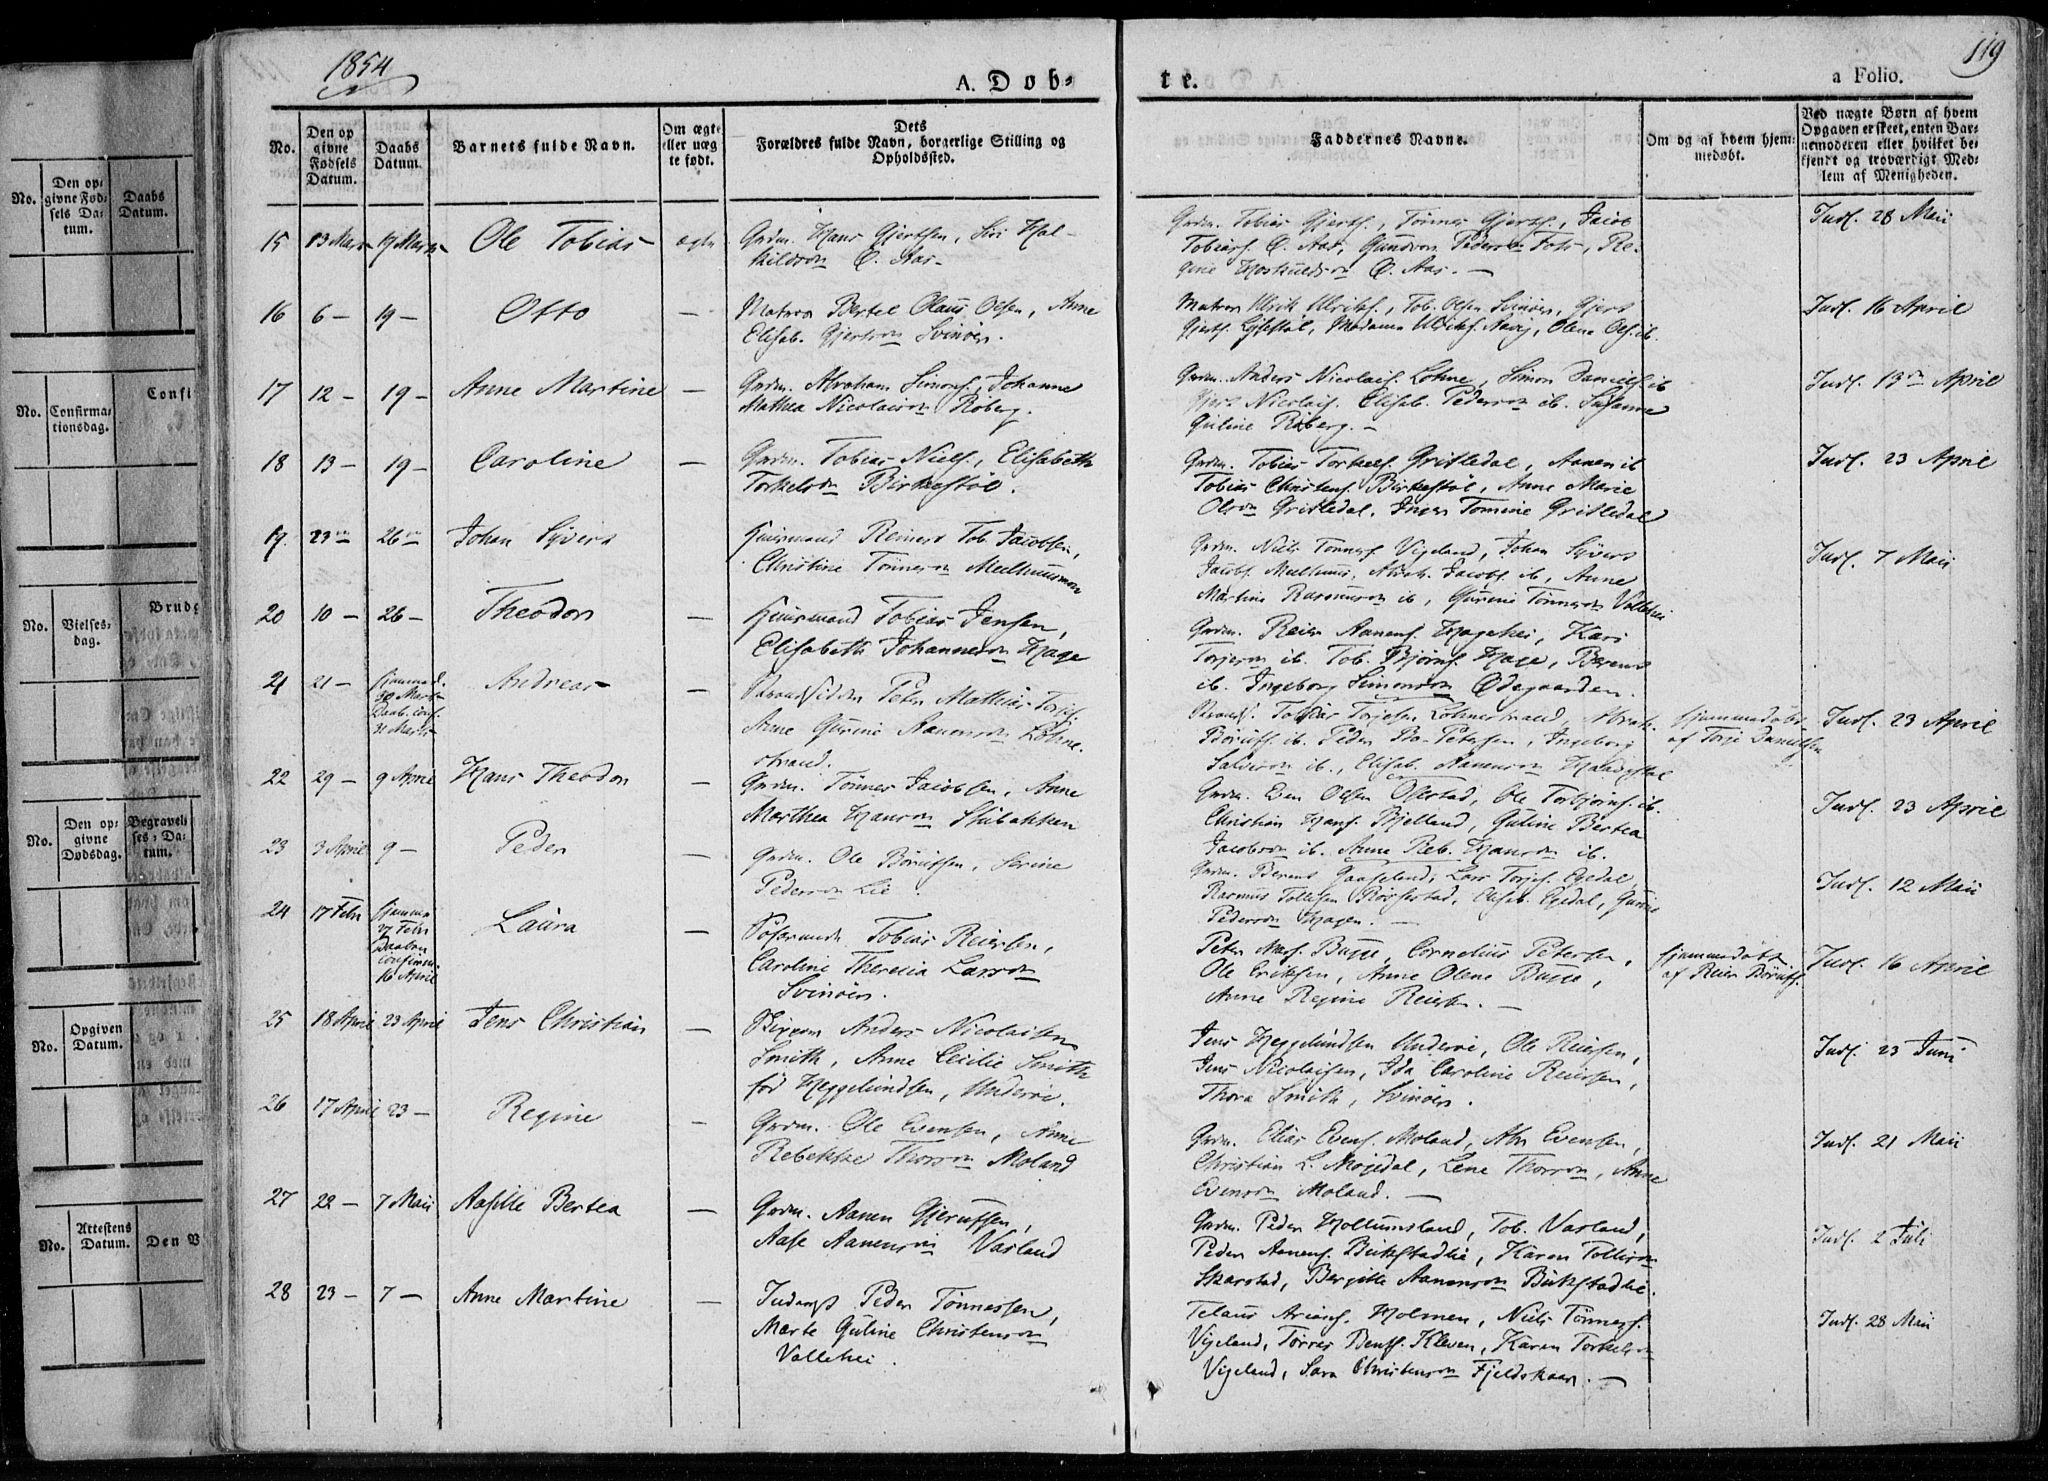 1854
119
A. Døb-
te.
a Folio.
No.
Den op
givne
Fødsels
Datum.
Daabs
Datum.
Barnets fulde Navn.
Om ægte
eller uæg
te født.
Dets
Forældres fulde Navn, borgerlige Stilling og
Opholdssted.
Faddernes Navne.
Om og af hvem hjem-
medøbt.
Ved uægte Børn af hvem
Opgaven er skeet, enten Bar-
nemoderen eller hvilket be-
kjendt og troværdigt Med-
lem af Menigheden.
15 13 Mars 19 Marts Ole Tobias ægte Grdm. Hans Gjertsen, Siri Hal-
Ø. Aas
Grdm. Tobias Gjerts., Tønnes Gjerts., Jacob
Tobias. Ø. Aas, Gundvor Peders Foss, Re-
gine Ø. Aas. —
Indf. 28 Maii
16 6 — 19 — Otto — Matros Bertel Olaus Olsen, Anne
Elisab. Gjertsdn Svinøer.
Matros Ulrik Ulriks., Tob. Olsen Svinøer, Gjert
Gjerts. Madame Ulriks. Olene Ols. ib.
Indf. 16 April
17 12 — 19 — Anne Martine — Grdm. Abraham Simons., Johanne
Mathea Nicolaisdn Røberg.
Grdm. Anders Nicolais. Lohne, Simon Daniels. ib
Gjert Nicolais. Elisab. Pedersdn ib. Susanne
Guline Røberg. —
Indf. 13de April
18 13 — 19 — Caroline — Grdm. Tobias Niels., Elisabeth
Torkelsdn Birkestøl.
Grdm. Tobias Torkels. Gritledal, Aanen ib
Tobias Christens. Birkestøl, Anne Marie
Olsdn Gritledal, Inger Tomine Gritledal
Indf. 23 April
19. 23de 26de Johan Syvert Huusmand Reinert Tob. Jacobsen,
Christine Tønnesdn Melhuusmoen
Grdm. Niels Tønnes. Vigeland, Johan Syvert
Jacobs. Melhuus, Abrah. Jacobs. ib, Anne
Martine Rasmusdn ib, Gurine Tønnesdn Vallehei
Indf. 7 Maii
20 10 — 26 — Theodor — Huusmand Tobias Jensen,
Elisabeth Johannesdn Hage
Grdm. Reier Aanens. Hagehei, Kari
Torjesdn ib. Tob. Bjørns. Hage, Berent
ib. Ingeborg Simonsdn Ødegaarden.
21 21 — hjemmed.
30 Marts
Daab. conf.
31 Marts
Andreas — Strandsidder Peter Mathias Torjes.
Anne Gurine Aanensdn Lohne-
strand.
Strands. Tobias Torjesen Lohnestrand, Abrah.
Børufs. ib. Peder Bo Petersen, Ingeborg
Salvesdn ib., Elisab. Aanensdn
hjemmedøbt
af Torje Danielsen
Indf. 23 April
22 29 — 9 April Hans Theodor — Grdm. Tønnes Jacobsen, Anne
Marthea Hansdn Stubakken
Grdm. Even Olsen Ofestad, Ole Torbjørns. ib.
Christian Hans. Bjelland, Guline Bertea
Jacobsdn ib. Anne Reb. Hansdn ib.
Indf. 23 April
23 3 April 9 — Peder — Grdm. Ole Børufsen, Serine
Pedersdn Lie.
Grdm. Berent Gaaseland, Lars Torjes. Egedal
Rasmus Tollefsen Elisab. Egedal, Gurine
Pedersdn Hagen. —
Indf. 12 Maii
24 17 Febr hjemmed
27 Febr
Daaben
confirm.
16 April
Laura — Søfarende Tobias Reiersen,
Caroline Theresia Larsdn
Svinøer.
Peter Mars. Bugge, Cornelius Petersen,
Ole Eriksen, Anne Olene Bugge,
Anne Regine Reiers. —
hjemmedøbt
af Reier Børufs.
Indf. 16 April
25 18 April 23 April Jens Christian — Skipper Anders Nicolaisen
Smith, Anne Cecilie Smith
fød Heggelundsen, Underøe.
Jens Heggelundsen Underøe, Ole Reiersen,
Jens Nicolaisen, Ida Caroline Reiersen,
Thora Smith, Svinøer.
Indf. 23 Juni
26 17 April 23 — Regine — Grdm. Ole Evensen, Anne
Rebekke Thorsdn Moland
Grdm. Elias Evens. Moland, Abr Evensen,
Christian L. Møgedal, Lene Thorsdn, Anne
Evensdn Moland. —
Indf. 21 Maii
27 22 — 7 Maii Aasille Bertea — Grdm. Aanen Gjerufsen,
Aase Aanensdn Vasland
Grdm. Peder Hollumsland, Tob. Vasland,
Peder Aanens. Bukstadlie, Karen Tollisdn
Skarstad, Bergitte Aanensdn Bukstadlie.
Indf. 2 Juli
28 23 — 7 — Anne Martine — Inderst Peder Tønnessen,
Marte Guline Christensdn
Vallehei.
Telaus Arians. Holmen, Niels Tønness.
Vigeland, Tørres Bents. Kleven, Karen Torkelsdn
Vigeland, Sara Christensdn Fjeldskaar. —
Indf. 28 Maii
No.
Den op-
givne Fød-
sels Da-
tum.
Daabs
Datum.
Confi
No.
Confirma-
tionsdag.
Brudg
No.
Vielses-
dag.
No.
Den op-
givne
Dødsdag.
Begravel-
ses-Da-
tum.
No.
Opgiven
Datum.
No.
Attestens
Datum.
Den V